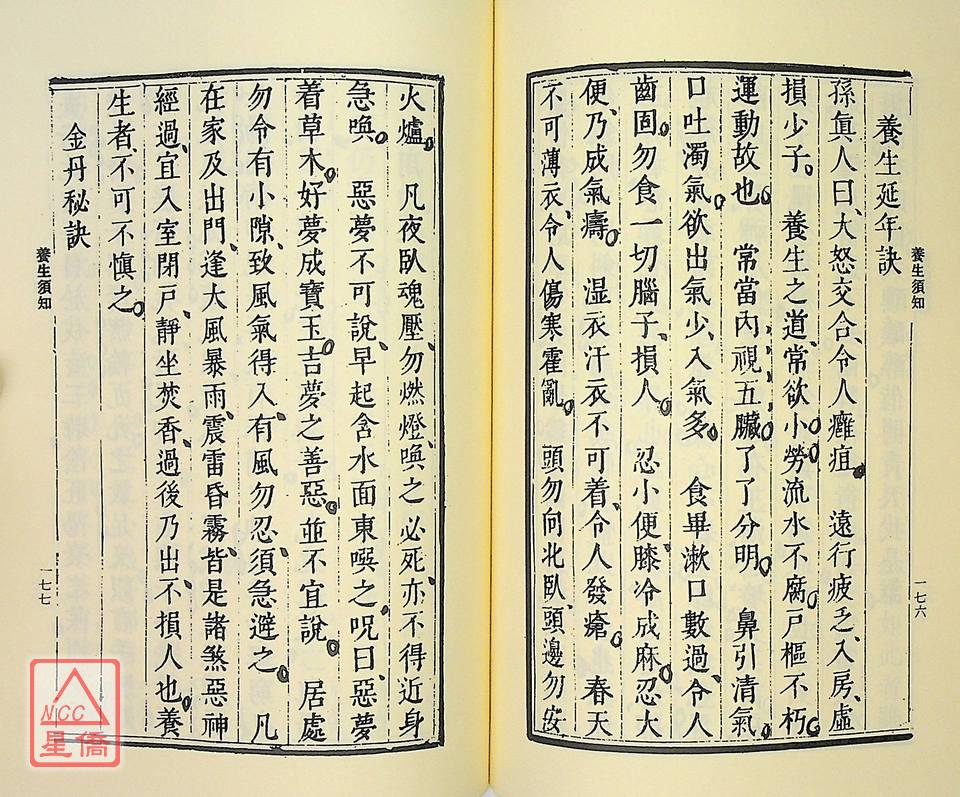 養生延年訣
孫眞人曰、大怒交合、令人癰疽。　遠行疲乏、入房、虛
損少子。　養生之道、常欲小勞。流水不腐、戶樞不朽。
運動故也。　常當內視、五臟、了了分明。　鼻引清氣、
口吐濁氣。欲出氣少、入氣多。　食畢漱口數過、令人
齒固。勿食一切腦子、損人。　忍小便、膝冷成麻。忍大
便、乃成氣痔。　濕衣汗衣不可着、令人發瘡。　春天
不可薄衣、令人傷寒霍亂。　頭勿向北臥、頭邊勿安
養生須知
一七六
火爐。　凡夜臥魂壓、勿燃燈、喚之必死、亦不得近身
急喚。　惡夢不可說、早起含水面東噀之。呪曰、惡夢
着草木。好夢成寶玉。吉夢之善惡、並不宜說。　居處
勿令有小隙、致風氣得入、有風勿忍、須急避之。　凡
在家及出門、逢大風暴雨、震雷昏霧、皆是諸煞惡神
經過、宜入室閉戶、靜坐焚香、過後乃出、不損人也。養
生者、不可不慎之。
金丹秘訣
養生須知
一七七
NCC
星僑